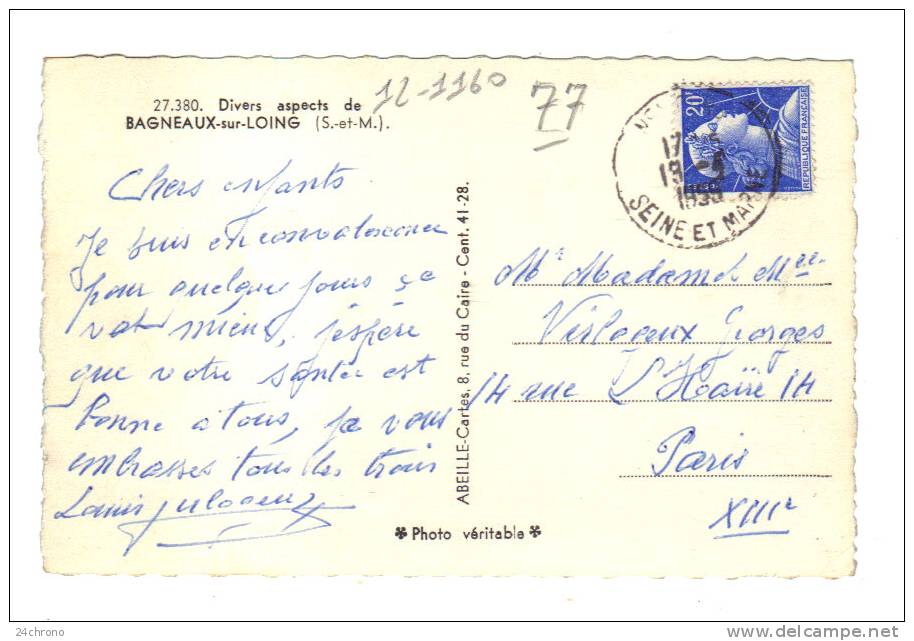 27.380. Divers aspects de
BAGNEAUX-sur-LOING (S.-et-M.).
12-1160
77
20F
REPUBLIQUE FRANÇAISE
17
19
SEINE ET MARNE
Chers enfants
Je suis en convalescence
pour quelques jours ça
vat mieux, j'espère
que votre santée est
bonne a tous, je vous
embrasses tous les trois
Louis
ABEILLE-Cartes, 8, rue du Caire - Cent. 41-28.
Mr Madame et Mlle
Georges
14 rue 14
Paris
XIIIe
✽ Photo véritable ✽
24chrono
www.delcampe.net